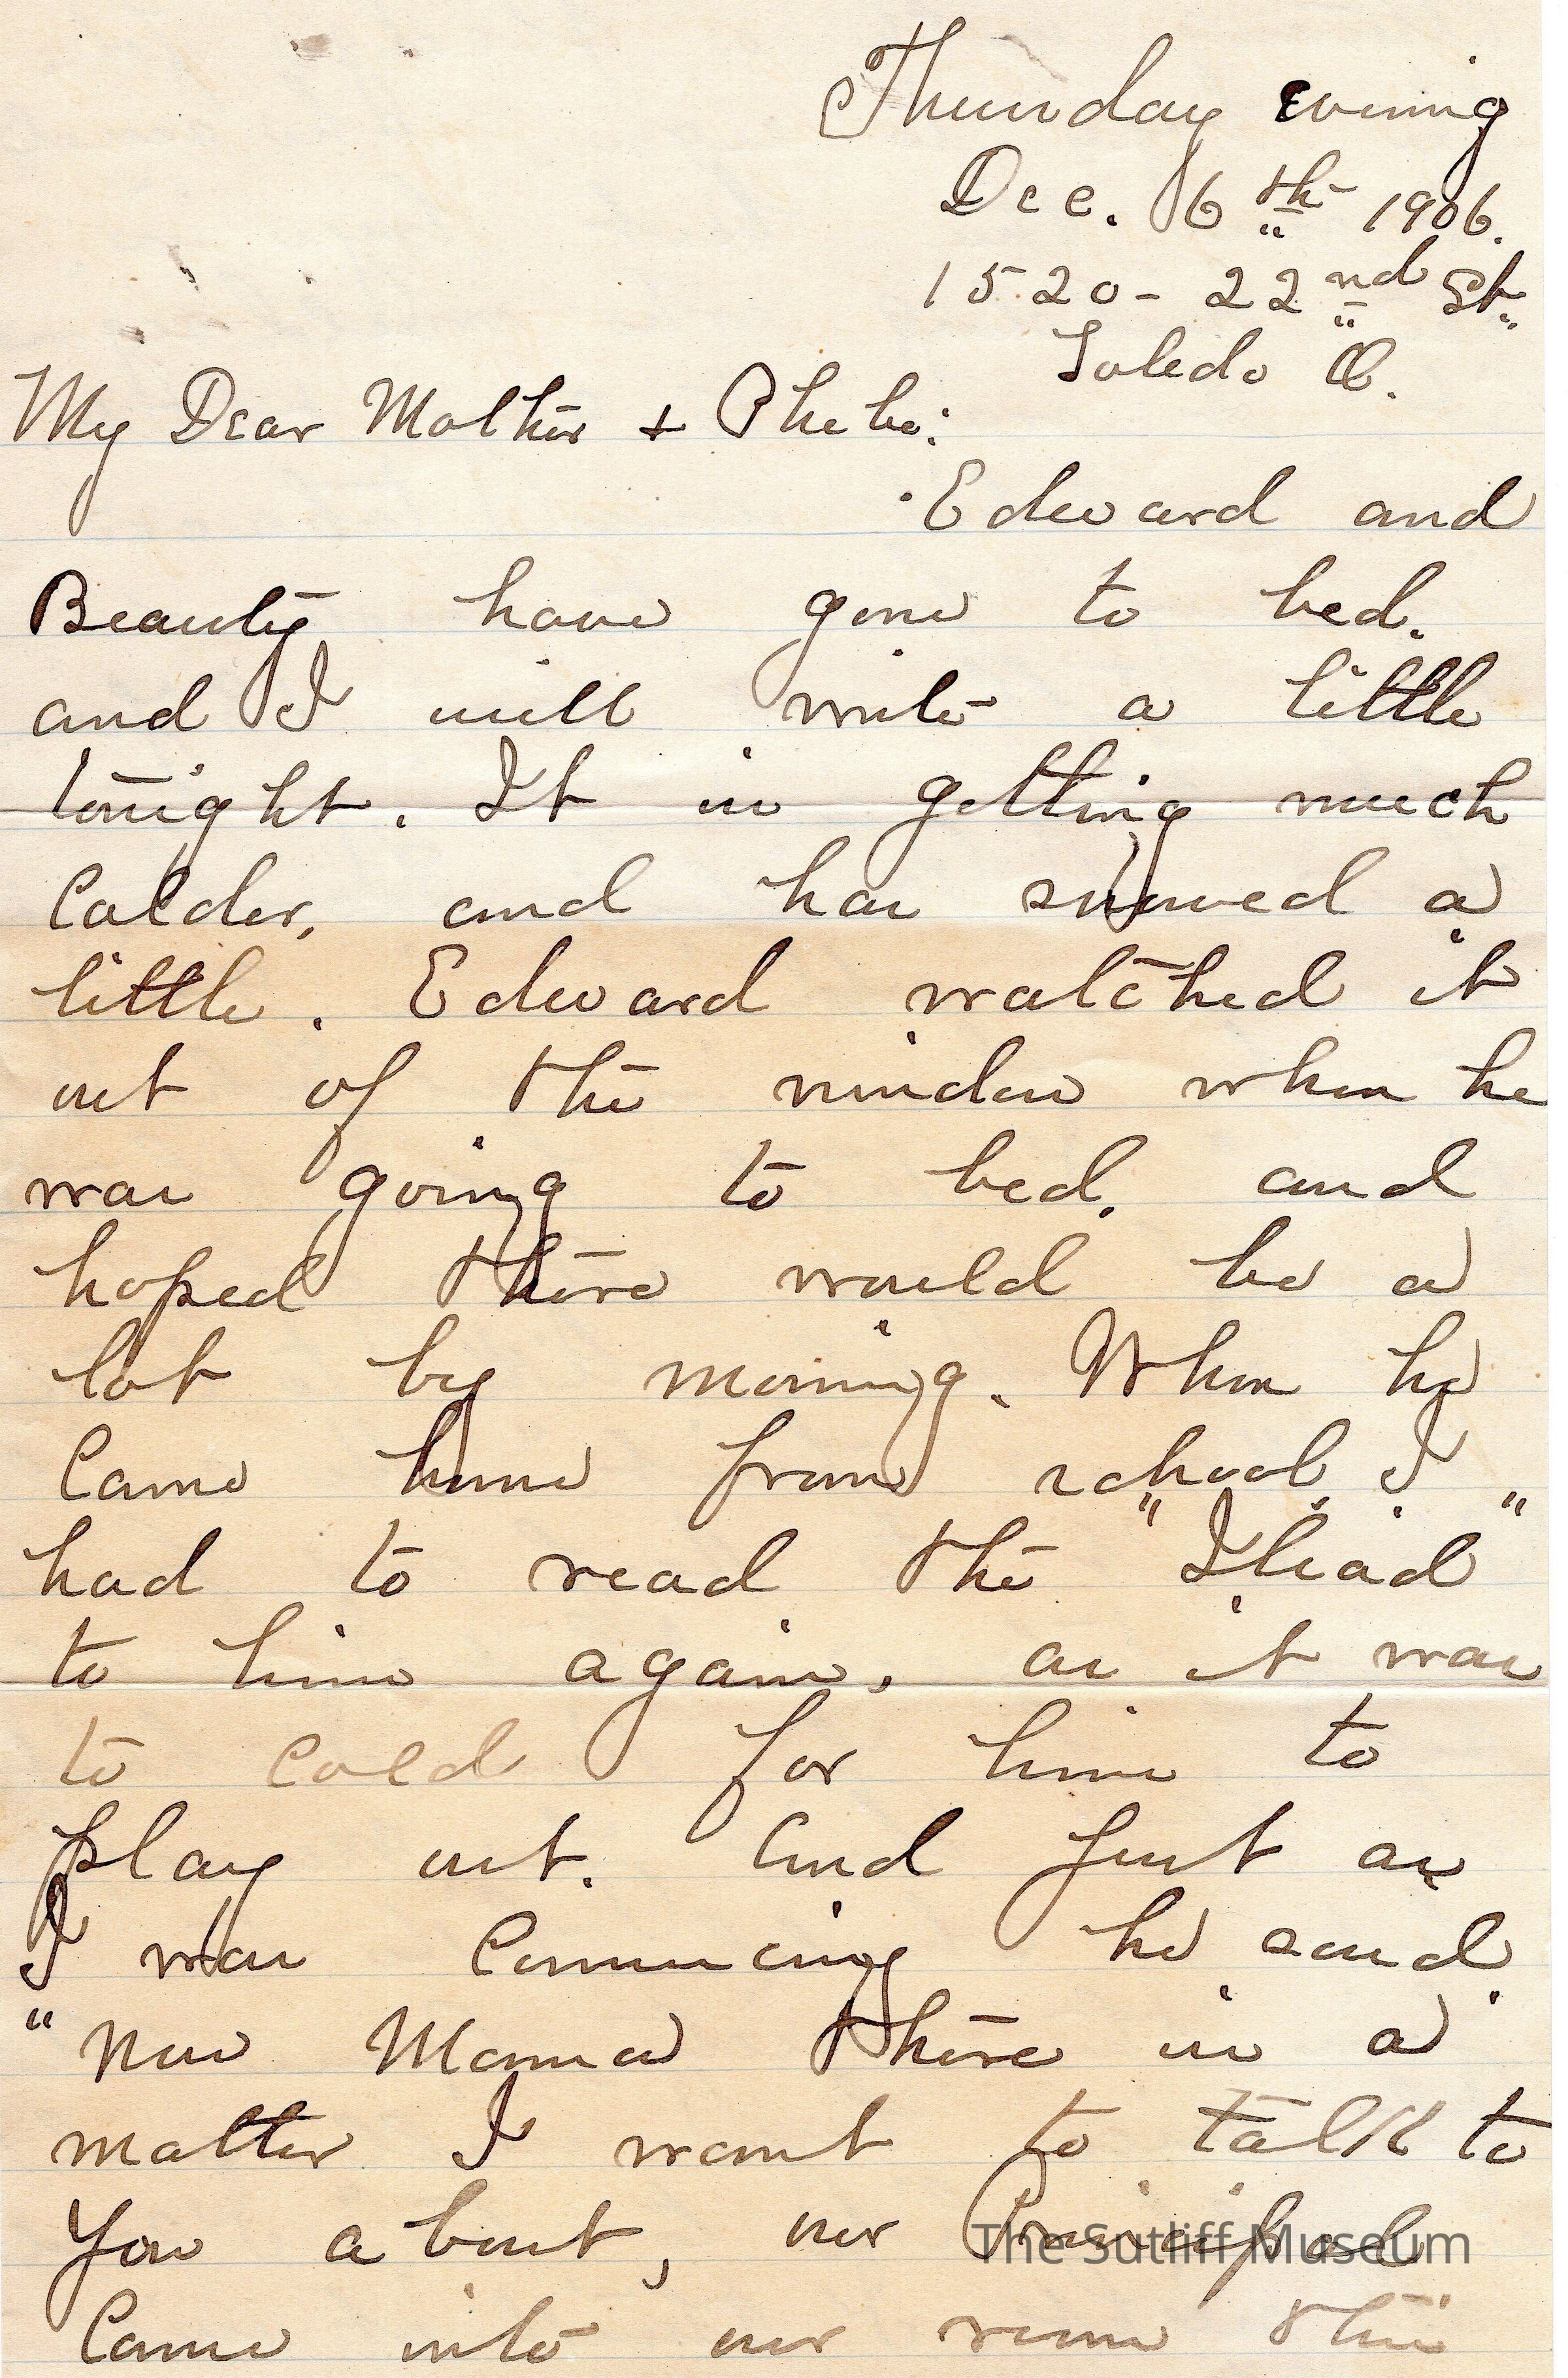 Thursday evening
Dec. 6th 1906.
1520-22nd St.
Toledo O.
My Dear Mother + Phebe:
Edward and
Beauty have gone to bed.
and I will write a little
tonight. It is getting much
colder, and has snowed a
little. Edward watched it
out of the window when he
was going to bed, and
hoped there would be a
lot by morning. When he
came home from school, I
had to read the "Iliad"
to him again, as it was
to cold for him to
play out. And just as
I was commencing he said,
"Now Mama there is a
matter I want to talk to
you about, our Principal
came into our room this
The Sutliff Museum